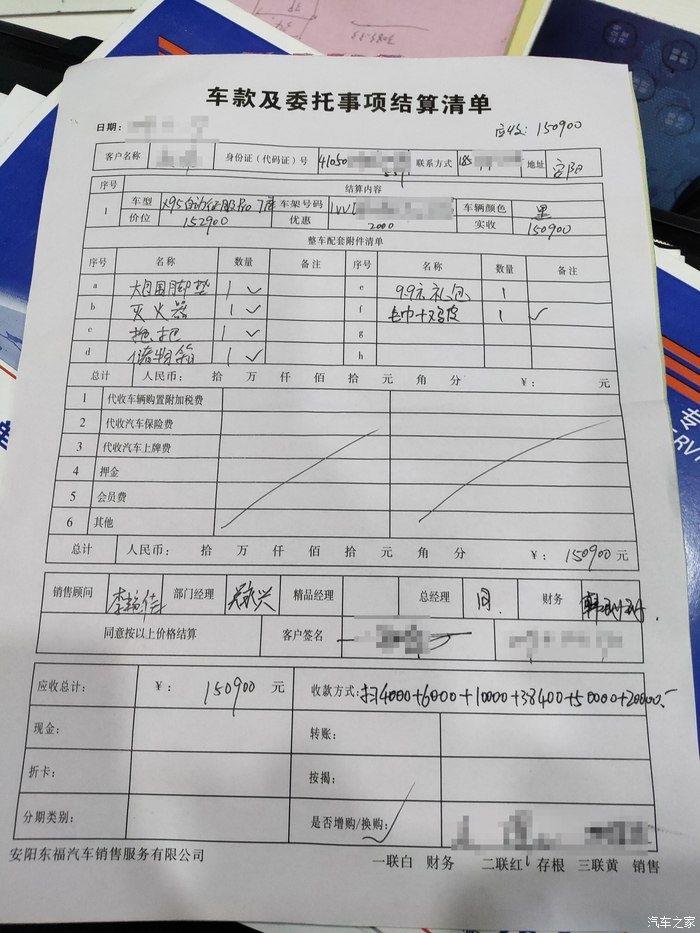 车款及委托事项结算清单
日期: 应收: 150900
客户名称 身份证（代码证）号 41050 联系方式 185 地址 安阳
序号 结算内容
1 车型 X95 7座 车架号码 LVV 车辆颜色 黑
价位 152900 优惠 2000 实收 150900
整车配套附件清单
序号 名称 数量 备注 序号 名称 数量 备注
a 大包围脚垫 1 ✓ e 99元礼包 1
b 灭火器 1 ✓ f 毛巾+鸡皮 1 ✓
c 拖把 1 ✓ g
d 储物箱 1 ✓ h
总计 人民币： 拾 万 仟 佰 拾 元 角 分 ¥： 元
1 代收车辆购置附加税费
2 代收汽车保险费
3 代收汽车上牌费
4 押金
5 会员费
6 其他
总计 人民币： 拾 万 仟 佰 拾 元 角 分 ¥： 150900 元
销售顾问 部门经理 精品经理 总经理 同 财务
同意按以上价格结算 客户签名
应收总计： ¥： 150900 元 收款方式: 扫4000+6000+10000+38400+50000+20000
现金： 转账：
折卡： 按揭：
分期类别： 是否增购/换购： ✓
安阳东福汽车销售服务有限公司 一联白 财务 二联红 存根 三联黄 销售
汽车之家